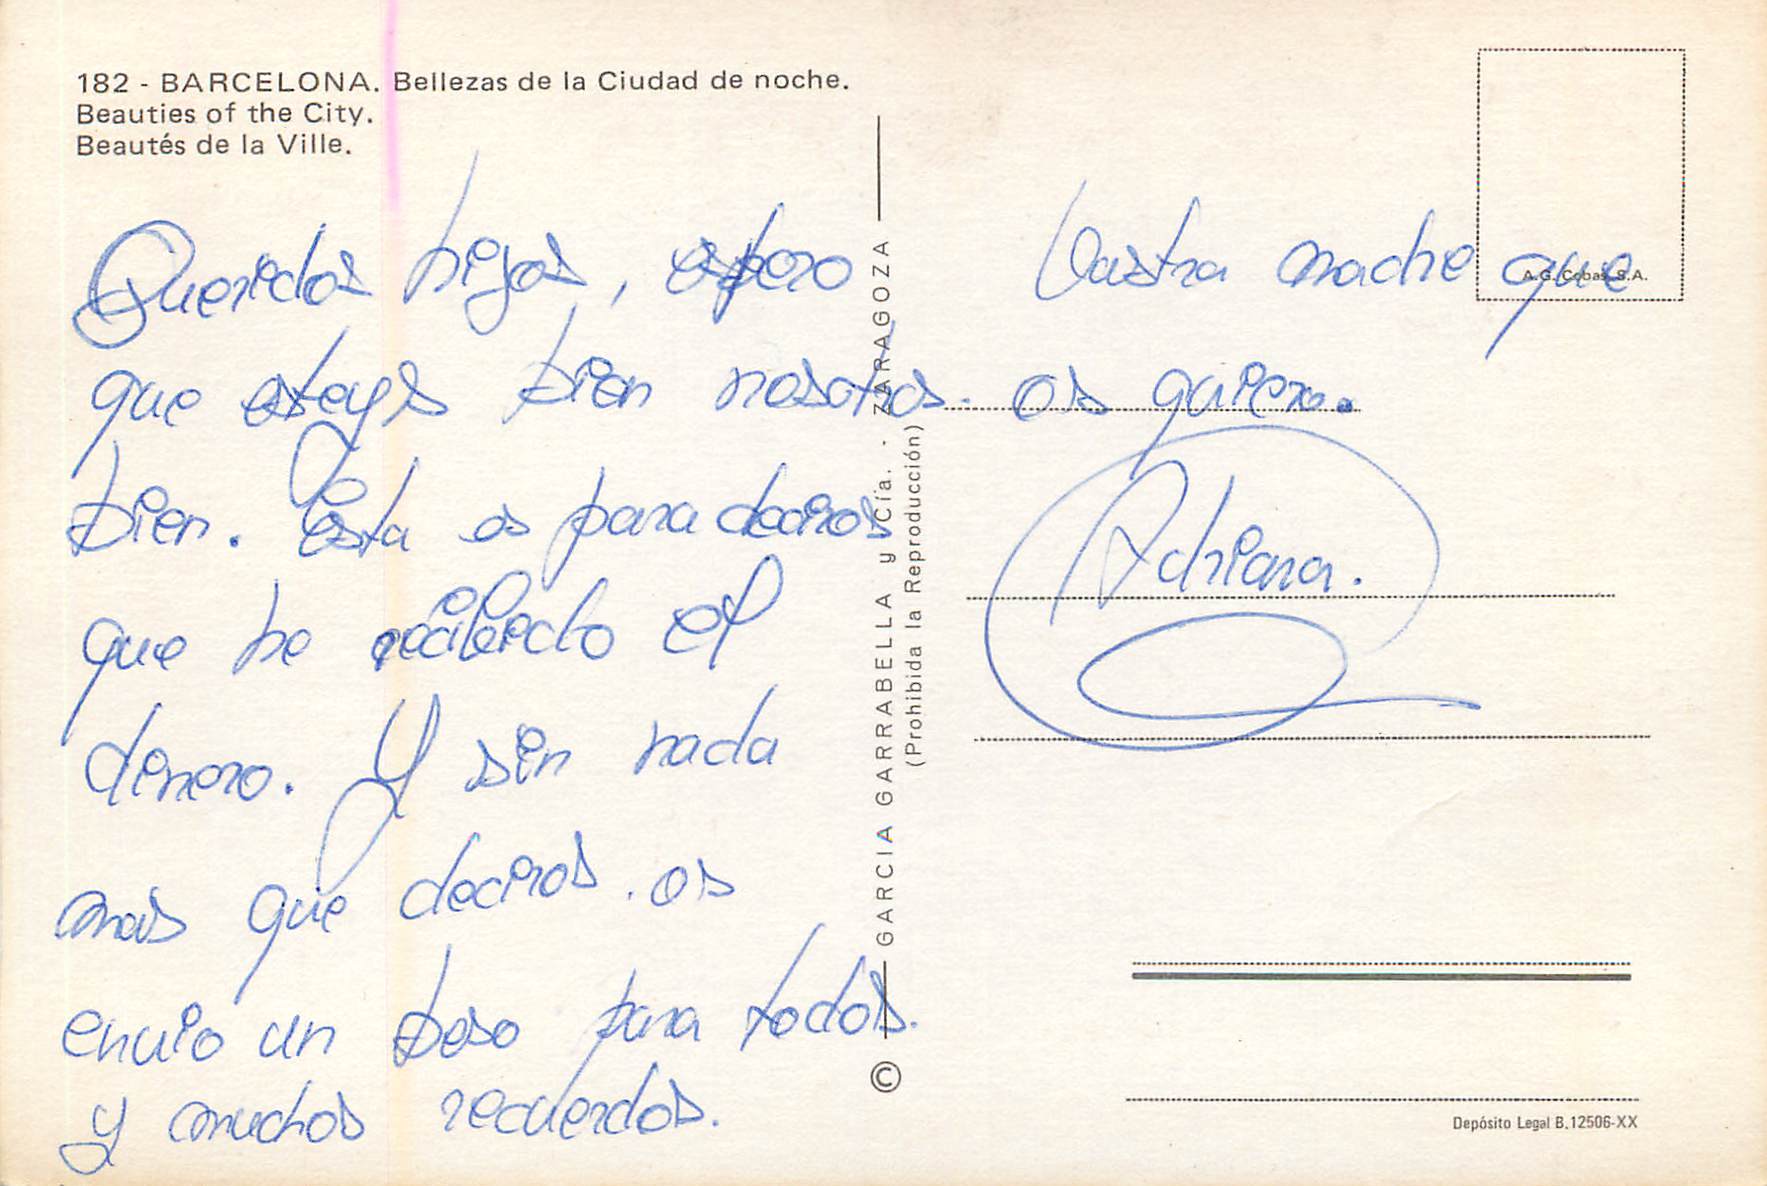 182 - BARCELONA. Bellezas de la Ciudad de noche.
Beauties of the City.
Beautés de la Ville.
Queridos hijos, espero
que esteys bien nosotros.
bien. Esta es para deciros
que he recibido el
dinero. Y sin nada
mas que deciros. os
envio un beso para todos.
y muchos recuerdos.
GARCIA GARRABELLA y Cía. - ZARAGOZA
(Prohibida la Reproducción)
©
A.G. Cobas, S.A.
Vastra madre que
os quiero.
Adriana.
Depósito Legal B.12506-XX